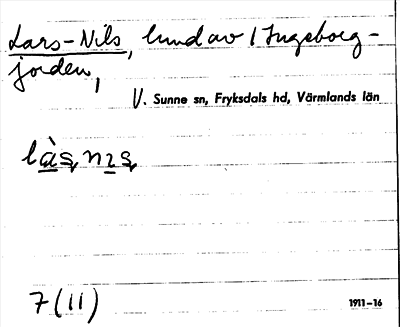 Lars-Nils, lund av l Ingeborg-
jorden,
V. Sunne sn, Fryksdals hd, Värmlands län
7(11)
1911-16